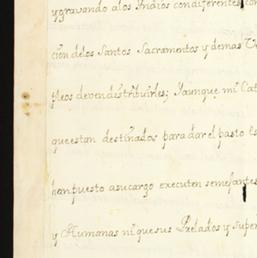 ygravando alos Indios condiferentes con
cion delos Santos Sacramentos y demas
pleos devendistribuirles; Yaunque mi Cat
queestan destinados para dar el pasto
han puesto asucargo executen semejantes
y Humanas ni que sus Prelados y Super